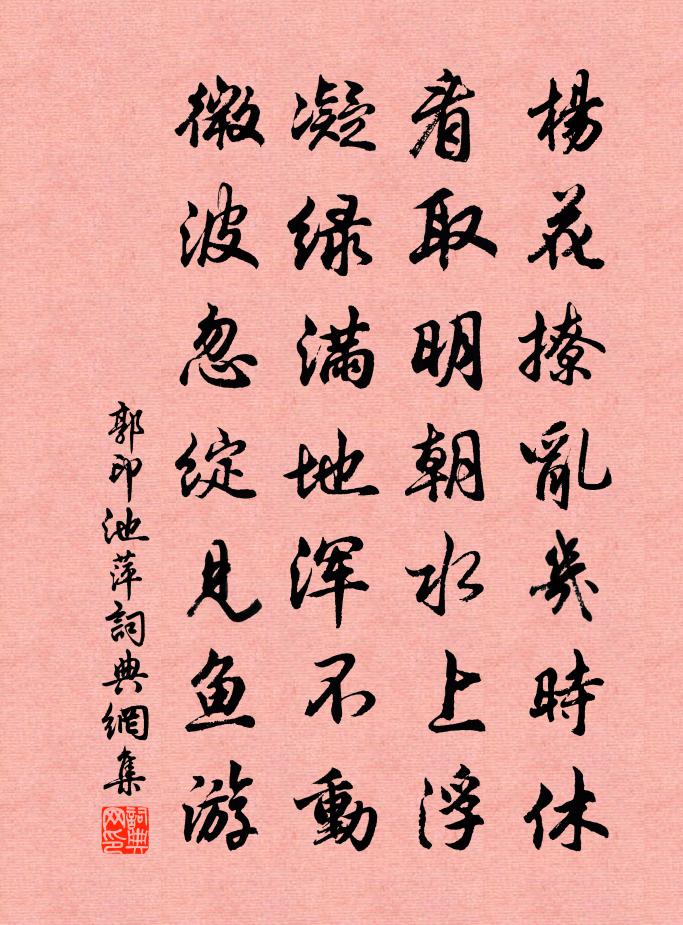 楊花撩亂幾時休
看取明朝水上浮
凝绿满地浑不動
微波忽綻見鱼游
郭印池萍詞典網集
詞典网印